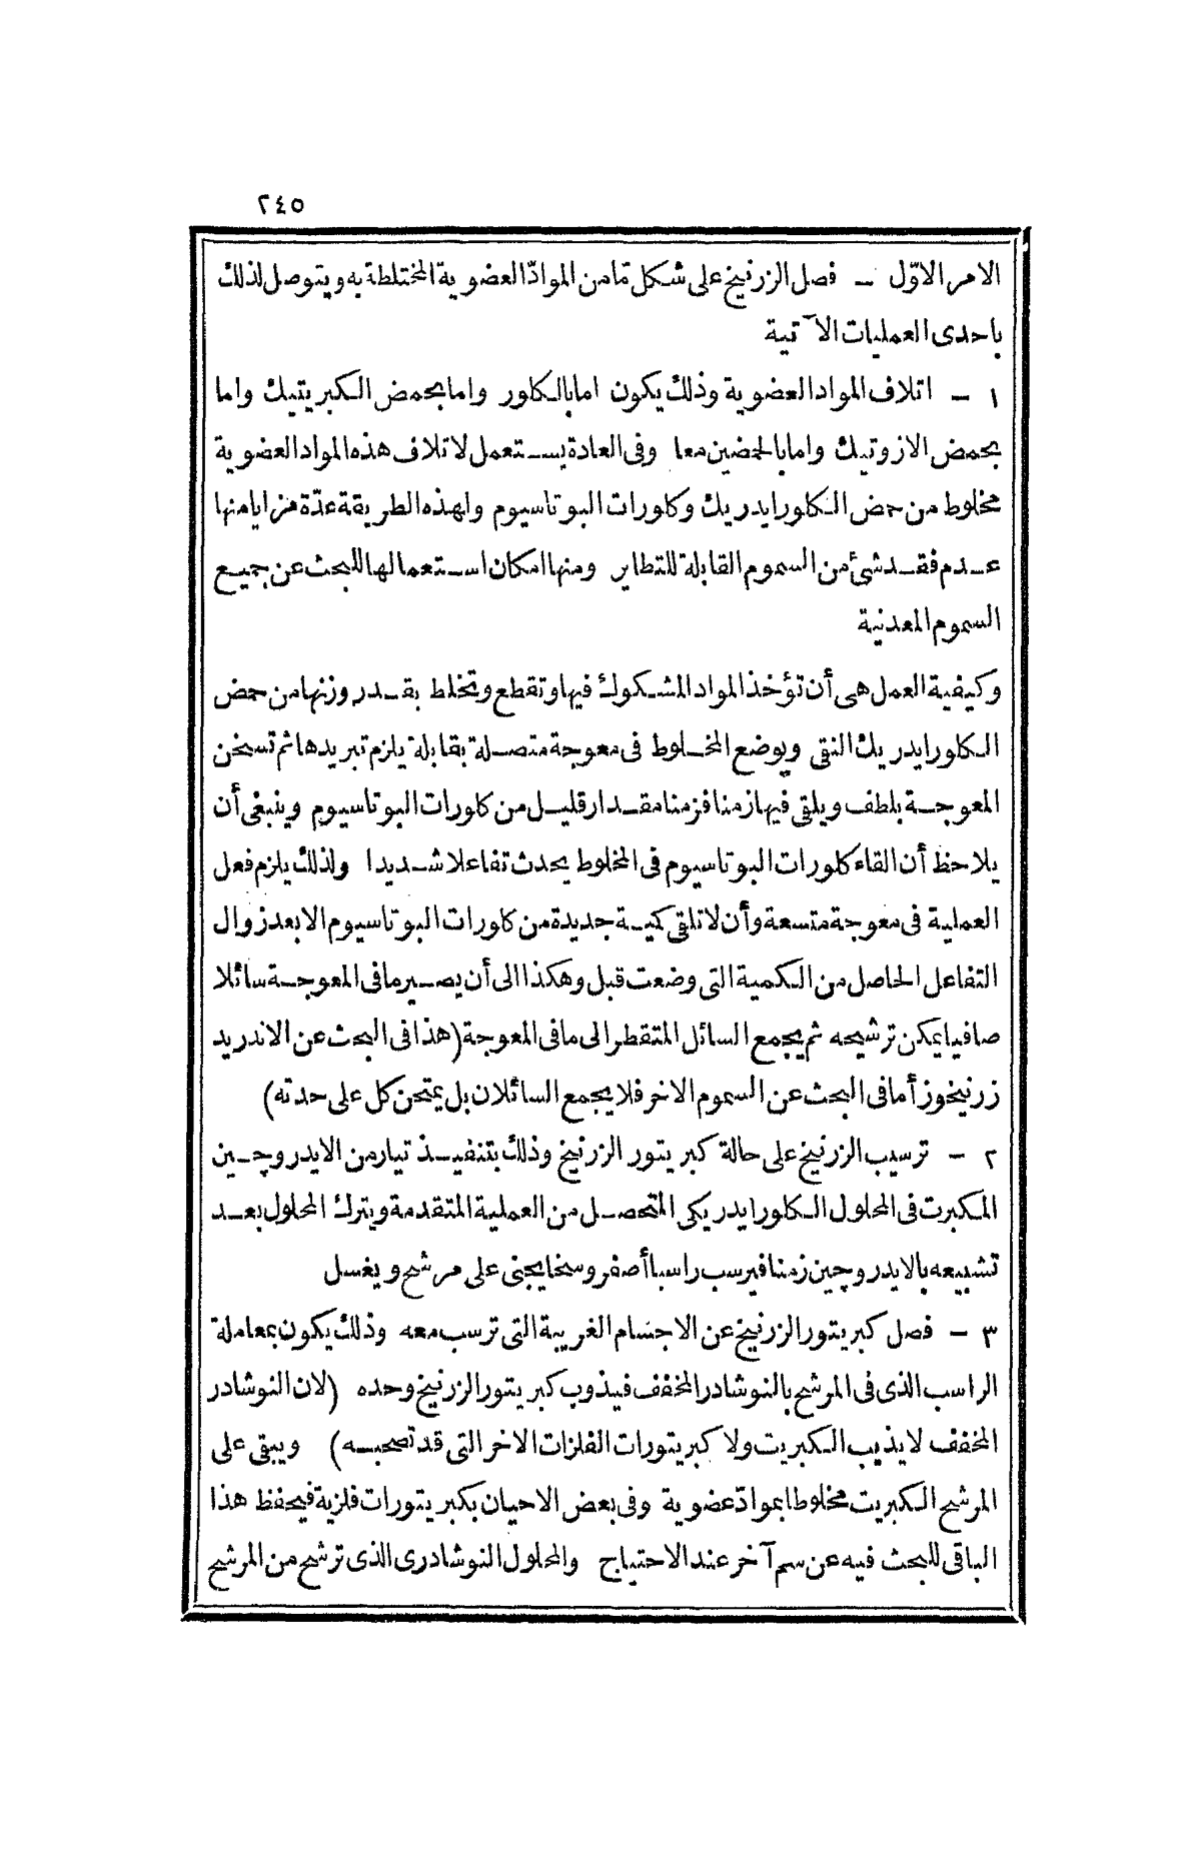 ٢٤٥
الامر الاوّل — فصل الزرنيخ على شكل مّا من الموادّ العضوية المختلطة به ويتوصل لذلك
باحدى العمليات الآتية
١ — اتلاف المواد العضوية وذلك يكون اما بالكلور واما بحمض الكبريتيك واما
بحمض الازوتيك واما بالحمضين معا وفى العادة يستعمل لاتلاف هذه المواد العضوية
مخلوط من حمض الكلورايدريك وكلورات البوتاسيوم ولهذه الطريقة عدّة مزايا منها
عدم فقد شئ من السموم القابلة للتطاير ومنها امكان استعمالها للبحث عن جميع
السموم المعدنية
وكيفية العمل هى أن تؤخذ المواد المشكوك فيها وتقطع وتخلط بقدر وزنها من حمض
الكلورايدريك النقى ويوضع المخلوط فى معوجة متصلة بقابلة يلزم تبريدها ثم تسخن
المعوجة بلطف ويلقى فيها زمنا فزمنا مقدار قليل من كلورات البوتاسيوم وينبغى أن
يلاحظ أن القاء كلورات البوتاسيوم فى المخلوط يحدث تفاعلا شديدا ولذلك يلزم فعل
العملية فى معوجة متسعة وأن لا تلقى كمية جديدة من كلورات البوتاسيوم الا بعد زوال
التفاعل الحاصل من الكمية التى وضعت قبل وهكذا الى أن يصير ما فى المعوجة سائلا
صافيا يمكن ترشيحه ثم يجمع السائل المتقطر الى ما فى المعوجة (هذا فى البحث عن الاندريد
زرنيخوز أما فى البحث عن السموم الاخر فلا يجمع السائلان بل يمتحن كل على حدته)
٢ — ترسيب الزرنيخ على حالة كبريتور الزرنيخ وذلك بتنفيذ تيار من الايدروچين
المكبرت فى المحلول الكلورايدريكى المتحصل من العملية المتقدمة ويترك المحلول بعد
تشبيعه بالايدروچين زمنا فيرسب راسبا أصفر وسخا يجنى على مرشح ويغسل
٣ — فصل كبريتور الزرنيخ عن الاجسام الغريبة التى ترسب معه وذلك يكون بمعاملة
الراسب الذى فى المرشح بالنوشادر المخفف فيذوب كبريتور الزرنيخ وحده (لان النوشادر
المخفف لا يذيب الكبريت ولا كبريتورات الفلزات الاخر التى قد تصحبه) ويبقى على
المرشح الكبريت مخلوطا بموادّ عضوية وفى بعض الاحيان بكبريتورات فلزية فيحفظ هذا
الباقى للبحث فيه عن سم آخر عند الاحتياج والمحلول النوشادرى الذى ترشح من المرشح